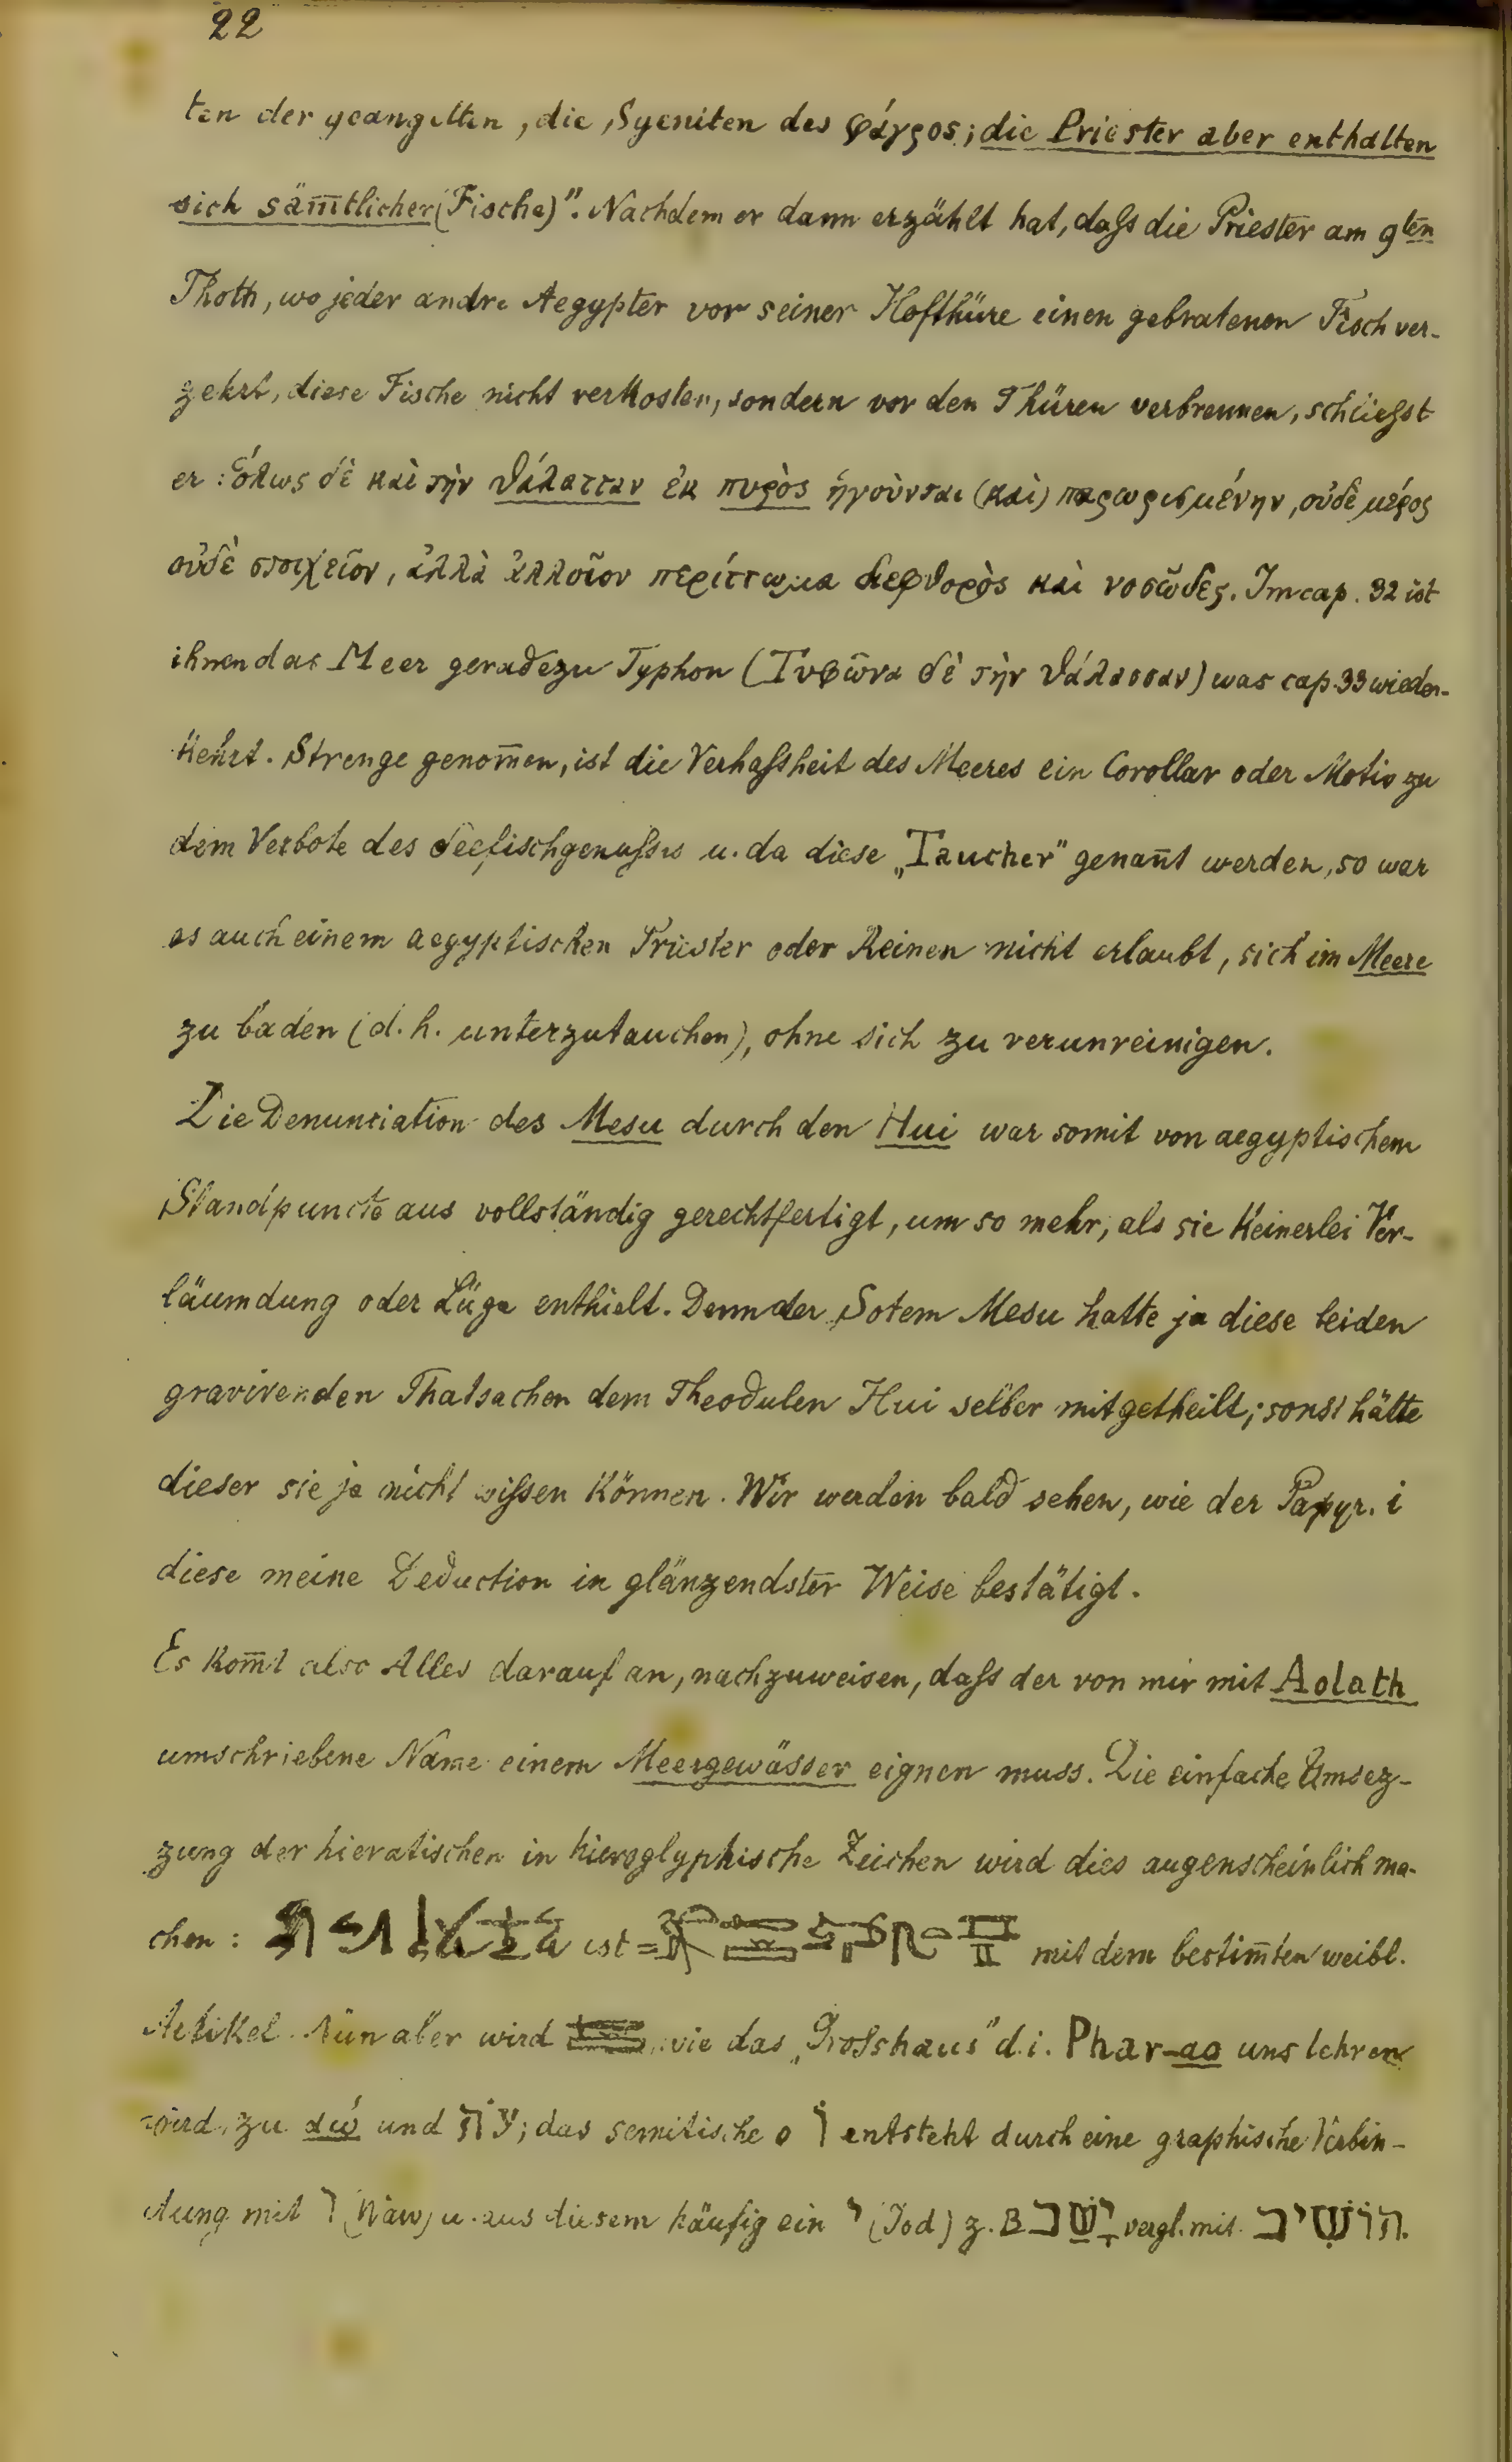 22
ten der geangelten, die Syeniten des φάγρος; die Priester aber enthalten
sich säm̄tlicher (Fische)". Nachdem er dann erzählt hat, daſs die Priester am 9ten
Thoth, wo jeder andre Aegypter vor seiner Hofthüre einen gebratenen Fisch ver-
zehrt, diese Fische nicht verkosten, sondern vor den Thüren verbrennen, schlieſst
er: ὅλως δὲ καὶ τὴν θάλατταν ἐκ πυρὸς ἡγοῦνται (καὶ) παρωρισμένην, οὐδὲ μέρος
οὐδὲ στοιχεῖον, ἀλλὰ ἀλλοῖον περίττωμα διεφθορὸς καὶ νοσῶδες. Im cap. 32 ist
ihnen das Meer geradezu Typhon (Τυφῶνα δὲ τὴν θάλασσαν) was cap. 33 wieder-
kehrt. Strenge genom̄en, ist die Verhaſstheit des Meeres ein Corollar oder Motiv zu
dem Verbote des Seefischgenuſses u. da diese „Taucher" genan̄t werden, so war
es auch einem aegyptischen Priester oder Reinen nicht erlaubt, sich im Meere
zu baden (d. h. unterzutauchen), ohne sich zu verunreinigen.
Die Denunciation des Mesu durch den Hui war somit von aegyptischem
Standpuncte aus vollständig gerechtfertigt, um so mehr, als sie keinerlei Ver-
läumdung oder Lüge enthielt. Denn der Sotem Mesu hatte ja diese beiden
gravirenden Thatsachen dem Theodulen Hui selber mitgetheilt; sonst hätte
dieser sie ja nicht wiſsen können. Wir werden bald sehen, wie der Papyr. i
diese meine Deduction in glänzendster Weise bestätigt.
Es kom̄t also Alles darauf an, nachzuweisen, daſs der von mir mit Aolath
umschriebene Name einem Meergewässer eignen muss. Die einfache Umsez-
zung der hieratischen in hieroglyphische Zeichen wird dies augenscheinlich ma-
chen: ist = mit dem bestim̄ten weibl.
Artikel. Nun aber wird wie das „Groſshaus" d. i. Phar-ao uns lehren
wird, zu αω und; das semitische o וֹ entsteht durch eine graphische Verbin-
dung mit ו (Waw) u. aus diesem häufig ein י (Jod) z. B יָשַׁב vergl. mit הוֹשִׁיב.